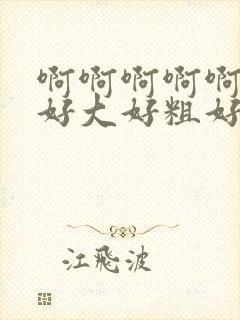 啊啊啊啊啊
好大好粗好
江飛波